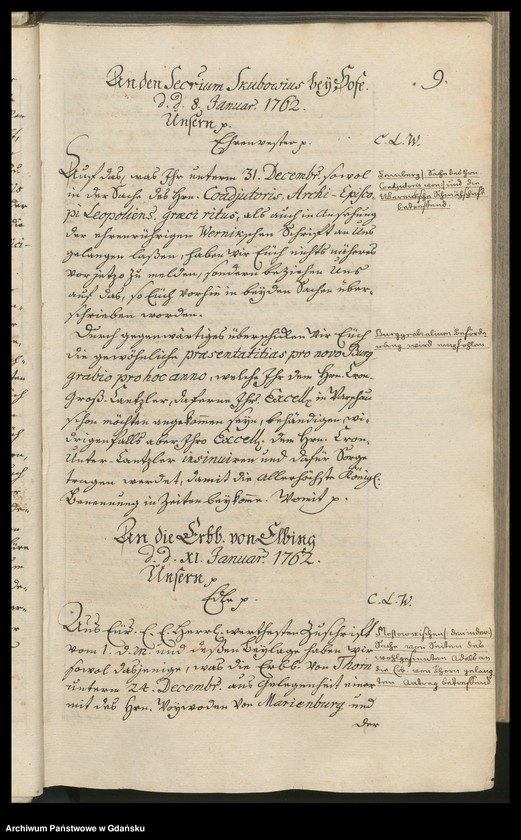 9.
An den Secrium Skubovius bey Hofe.
d. d. 8. Januar. 1762.
Unsern p.
Ehrenvester p. C. L. W.
Auf das, was Ihr unterm 31. Decembr. sowol
in der Sache des Hrn. Coadjutoris, Archi-Episco-
pi Leopoliens. graeci ritus, als auch in Ansehung
der ehrenrührigen Wernikschen Schrift an Uns
gelangen lassen, haben Wir Euch nichts näheres
vor jetzo zu melden, sondern beziehen Uns
auf das, so Euch vorhin in beyden Sachen über-
schrieben worden.
Lemberg Sache des Hrn
Coadjutoris von und die
Wernicksche Schmähschrift
betreffend.
Durch gegenwärtiges überschicken Wir Euch
die gewöhnliche praesentatitias pro novo Burg-
grabio pro hoc anno, welche Ihr dem Hrn. Cron-
Groß-Cantzler, daferne Ihre Excell. in Warschau
schon möchten angekommen seyn, behändigen, wi-
drigenfalls aber Ihro Excell. dem Hrn. Cron-
Unter-Cantzler insinuiren und dafür Sorge
tragen werdet, damit die Allerhöchste Königl.
Benennung in Zeiten beykomme. Womit p.
Burggrabialium Beförde-
rung wird empfohlen
An die Erbb. von Elbing
d. d. XI. Januar. 1762.
Unsern p
Edle p. C. L. W.
Aus Eur. E. E. Herrl. werthesten Zuschrift
vom 1. d. M. und deßen Beylage haben wir
sowol dasjenige, was die Erbb. von Thorn
unterm 24. Decembr. aus Gelegenheit einer
mit des Hrn. Woywoden von Marienburg und
der
Sache von Seiten des
wohlgesinnten Adels an
die Erb. von Thorn gelang-
ten Antrag betreffend
Archiwum Państwowe w Gdańsku